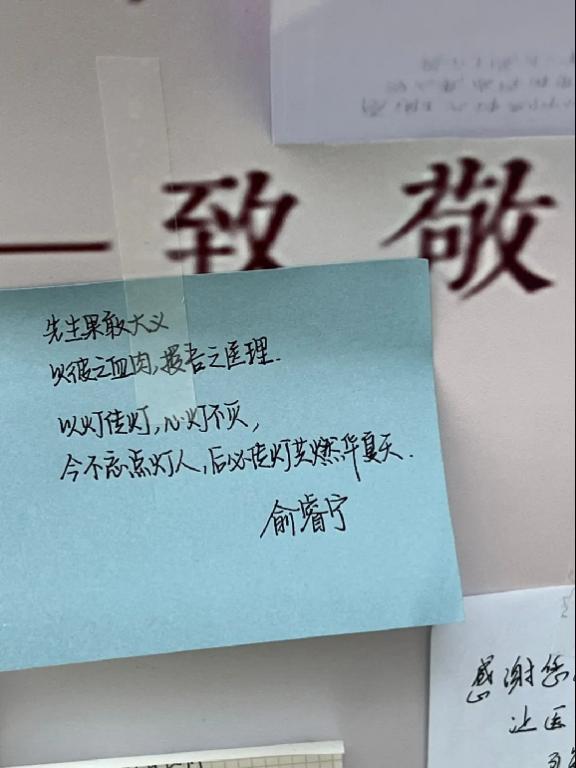 一致敬
先生果敢大义
以彼之血肉,授吾之医理.
以灯传灯,心灯不灭,
今不忘点灯人,后必传灯共燃华夏天.
俞睿宁
感谢您
让医